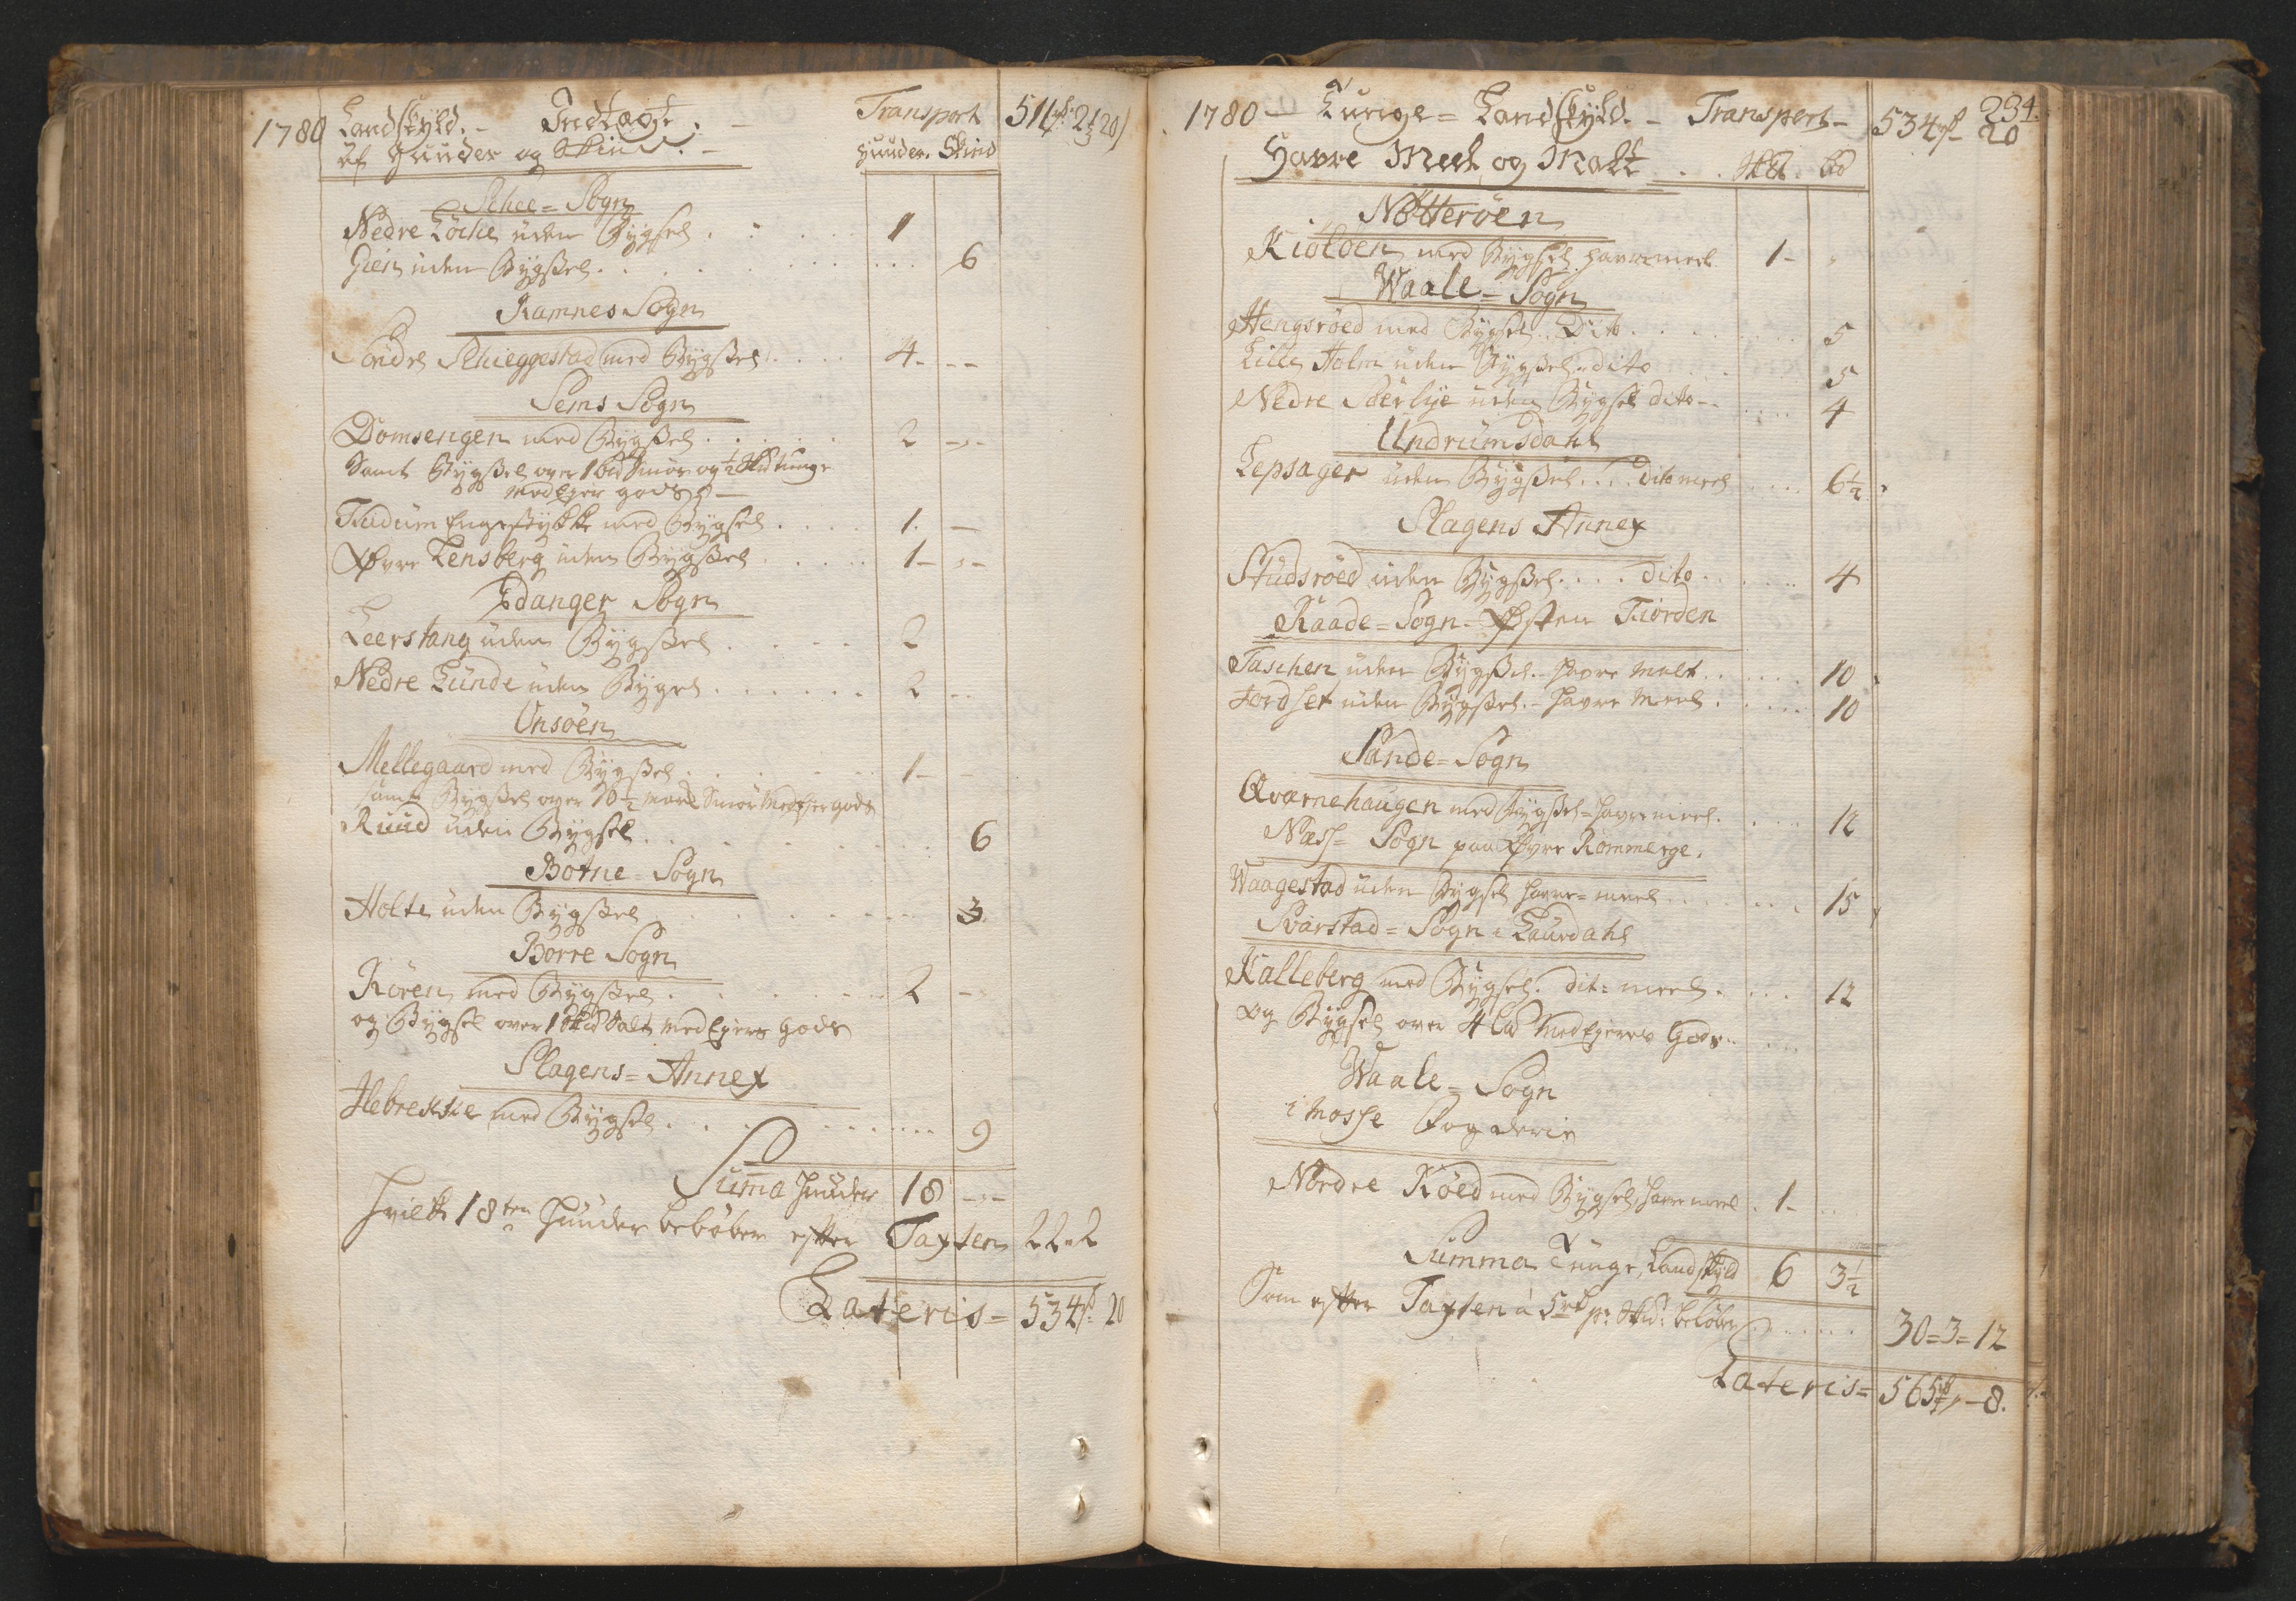 1780 Landskyld. - Indtægt. - Transport 511 rd 2 ß 20
af Huuder og Skind. - Huuder. Skind
Schee = Sogn
Nedre Løche uden Bygsel 1
Gien uden Bygsel 6
Ramnes Sogn
Søndre Schieggestad med Bygsel 4 - -
Sems Sogn
Domsengen med Bygsel 2 - -
Samt Bygsel over 1 bd Smør og ½ Skd tunge
Medejer gods -
Tudum Engestykke med Bygsel 1. -
Øvre Lensberg uden Bygsel 1 - -
Edanger Sogn
Leerstang uden Bygsel 2
Nedre Lunde uden Bygsel 2 -
Onsøen
Mellegaard med Bygsel 1 - -
samt Bygsel over 10½ mark Smør Medejer gods
Ruud uden Bygsel 6
Botne = Sogn
Holte uden Bygsel 3
Borre Sogn
Røren med Bygsel 2 -
og Bygsel over 1 Skd Salt Medejers Gods
Slagens = Annex
Ilebrekke med Bygsel 9
Summa Huuder 18 - -
Hvilke 18ten Huuder beløber efter Taxten 22 - 2
Lateris = 534 rd - 20
234.
1780 - Tunge = Landskyld. - Transport - 534 rd - 20
Havre Meel og Malt Skd. bd
Nøtterøen
Kiølden med Bygsel havremeel 1 -
Waale = Sogn
Hengsrøed med Bygsel Dito 5
Lille Holm uden Bygsel dito 5
Nedre Sørlye uden Bygsel dito 4
Undrumsdahl
Lepsager uden Bygsel dito meel 6½
Slagens Annex
Studsrøed uden Bygsel dito 4
Raade = Sogn - Østen Fiorden
Taschen uden Bygsel - havre Malt 10
Jordset uden Bygsel - havre Meel 10
Sande = Sogn
Qvarnehaugen med Bygsel - havremeel 12
Næss = Sogn paa Øvre Rommerige.
Waagestad uden Bygsel havre = meel 15
Svarstad = Sogn i Laurdahl
Kalleberg med Bygsel. dit: meel 12
og Bygsel over 4 bd Medejeres Gods
Waale = Sogn
i Mosse Fogderie
Nordre Røed med Bygsel, havremeel 1 -
Summa Tunge Landskyld 6 3½
Som efter Taxten à 5 rd pr Skd: beløber 30 = 3 = 12
Lateris = 565 rd - 8.